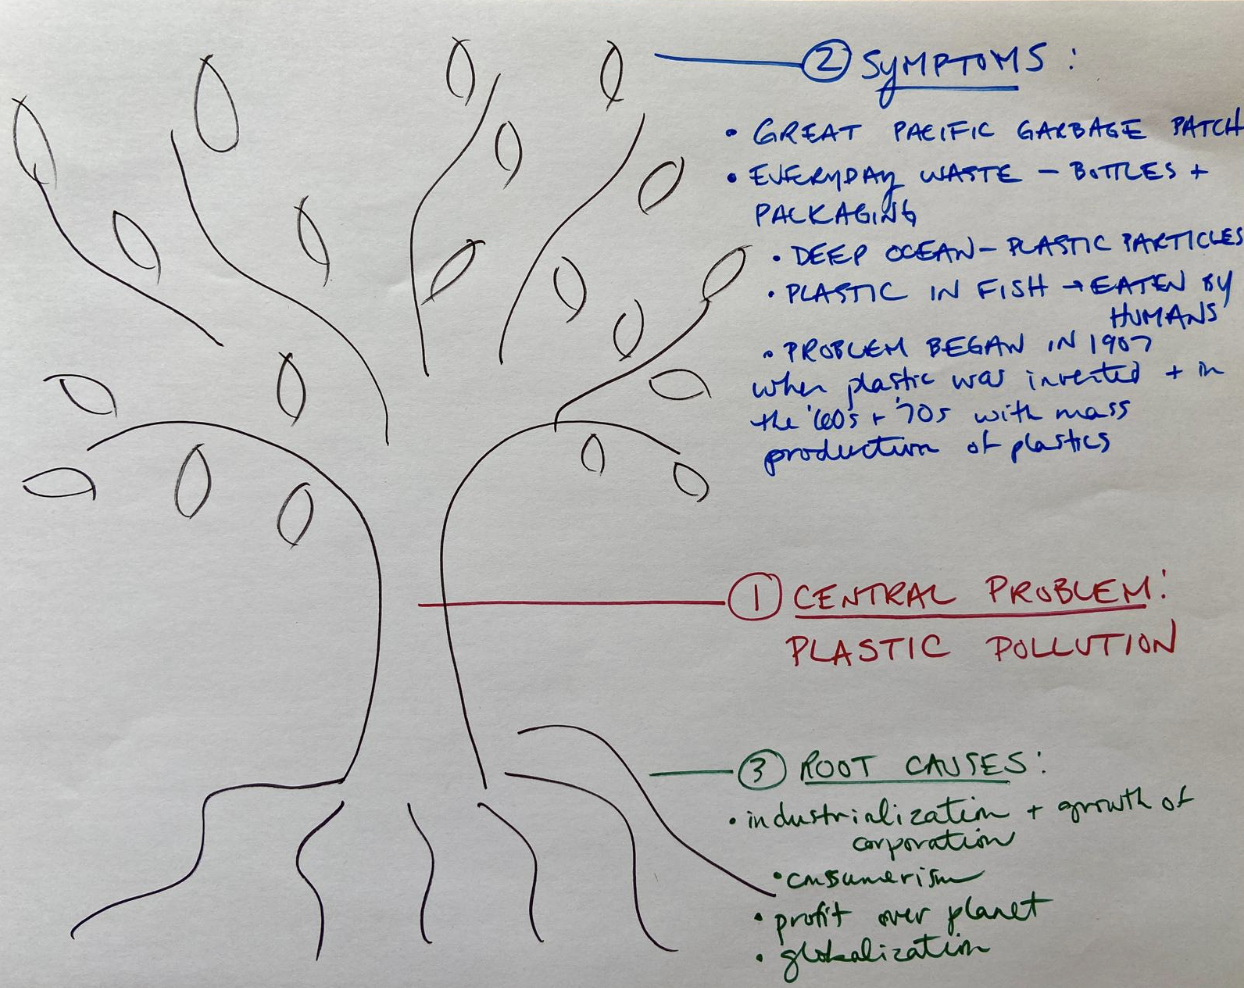 ② SYMPTOMS:
• GREAT PACIFIC GARBAGE PATCH
• EVERYDAY WASTE – BOTTLES +
PACKAGING
• DEEP OCEAN – PLASTIC PARTICLES
• PLASTIC IN FISH → EATEN BY
HUMANS
• PROBLEM BEGAN IN 1907
when plastic was invented + in
the '60s + '70s with mass
production of plastics
① CENTRAL PROBLEM:
PLASTIC POLLUTION
③ ROOT CAUSES:
• industrialization + growth of
corporation
• consumerism
• profit over planet
• globalization